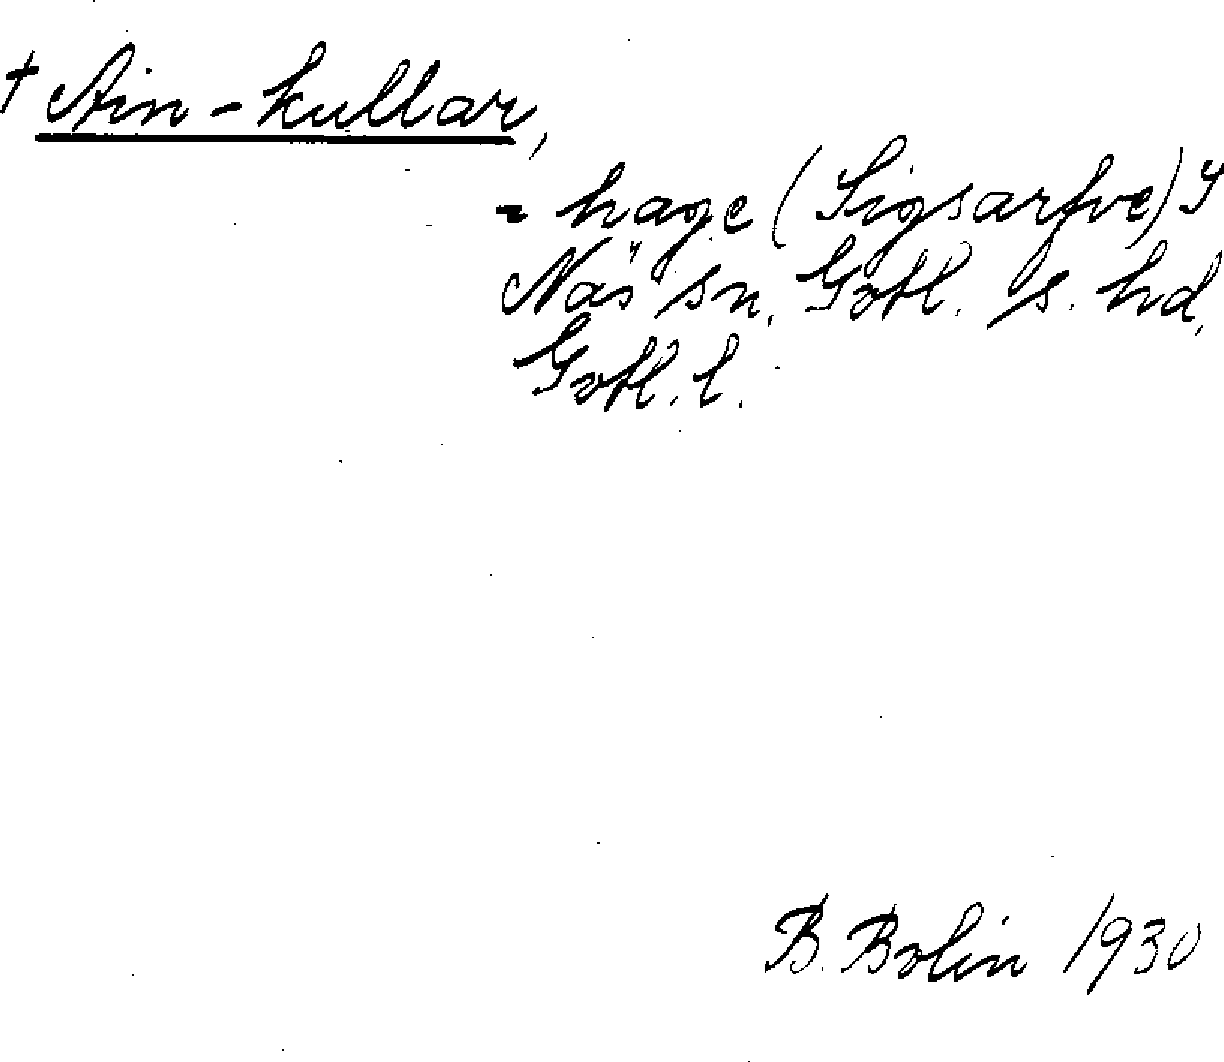 † Ain-kullar,
= hage (Sigsarfve) i
Näs sn, Gotl. s. hd,
Gotl. l.
B. Bolin 1930